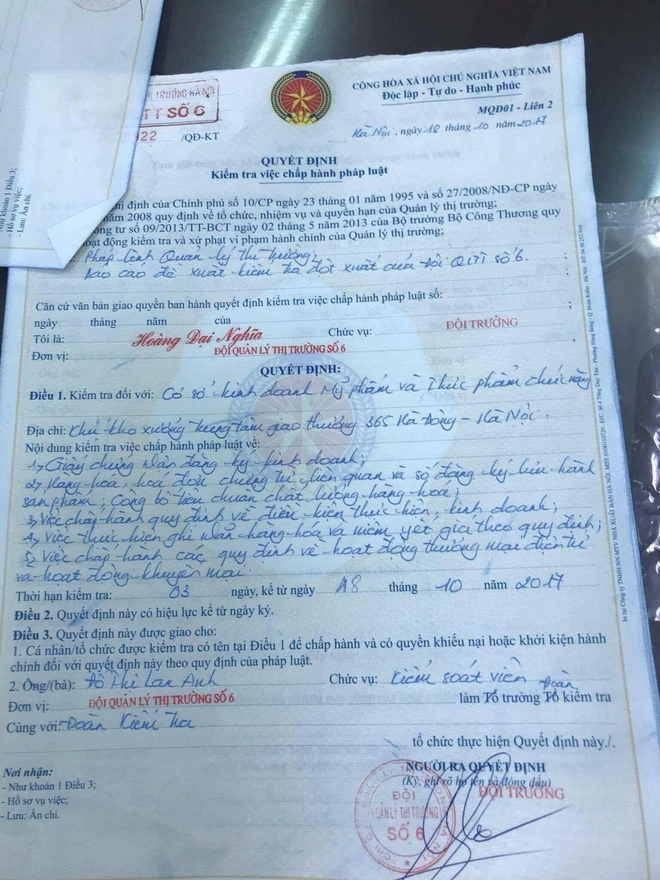 THỊ TRƯỜNG HÀ NỘI
TT SỐ 6
22 /QĐ-KT
CỘNG HÒA XÃ HỘI CHỦ NGHĨA VIỆT NAM
Độc lập - Tự do - Hạnh phúc
MQĐ01 - Liên 2
Hà Nội, ngày 18 tháng 10 năm 2017
QUYẾT ĐỊNH
Kiểm tra việc chấp hành pháp luật
định của Chính phủ số 10/CP ngày 23 tháng 01 năm 1995 và số 27/2008/NĐ-CP ngày
năm 2008 quy định về tổ chức, nhiệm vụ và quyền hạn của Quản lý thị trường;
tư số 09/2013/TT-BCT ngày 02 tháng 5 năm 2013 của Bộ trưởng Bộ Công Thương quy
hoạt động kiểm tra và xử phạt vi phạm hành chính của Quản lý thị trường;
Pháp lệnh Quản lý thị trường;
Báo cáo đề xuất kiểm tra đột xuất của Đội QLTT số 6.
Căn cứ văn bản giao quyền ban hành quyết định kiểm tra việc chấp hành pháp luật số:
ngày tháng năm của
Tôi là: Hoàng Đại Nghĩa Chức vụ: ĐỘI TRƯỞNG
Đơn vị: ĐỘI QUẢN LÝ THỊ TRƯỜNG SỐ 6
QUYẾT ĐỊNH:
Điều 1. Kiểm tra đối với: Cơ sở kinh doanh Mỹ phẩm và Thực phẩm chức năng
Địa chỉ: Khu kho xưởng trung tâm giao thương 365 Hà Đông - Hà Nội.
Nội dung kiểm tra việc chấp hành pháp luật về:
1, Giấy chứng nhận đăng ký kinh doanh;
2, Hàng hóa, hóa đơn chứng từ liên quan và số đăng ký lưu hành
sản phẩm; Công bố tiêu chuẩn chất lượng hàng hóa;
3, Việc chấp hành quy định về điều kiện thực hiện kinh doanh;
4, Việc thực hiện ghi nhãn hàng hóa và niêm yết giá theo quy định;
5, Việc chấp hành các quy định về hoạt động thương mại điện tử
và hoạt động khuyến mại.
Thời hạn kiểm tra: 03 ngày, kể từ ngày 18 tháng 10 năm 2017
Điều 2. Quyết định này có hiệu lực kể từ ngày ký.
Điều 3. Quyết định này được giao cho:
1. Cá nhân/tổ chức được kiểm tra có tên tại Điều 1 để chấp hành và có quyền khiếu nại hoặc khởi kiện hành
chính đối với quyết định này theo quy định của pháp luật.
2. Ông/(bà): Đỗ Thị Lan Anh Chức vụ: Kiểm soát viên
Đơn vị: ĐỘI QUẢN LÝ THỊ TRƯỜNG SỐ 6 làm Tổ trưởng Tổ kiểm tra
Đoàn
Cùng với: Đoàn Kiểm tra
tổ chức thực hiện Quyết định này./.
Nơi nhận:
- Như khoản 1 Điều 3;
- Hồ sơ vụ việc;
- Lưu: Ấn chỉ.
NGƯỜI RA QUYẾT ĐỊNH
(Ký, ghi rõ họ tên và đóng dấu)
ĐỘI TRƯỞNG
ĐỘI
QUẢN LÝ THỊ TRƯỜNG
SỐ 6
khoản 1 Điều
sơ vụ việc;
Lưu: Ấn chỉ.